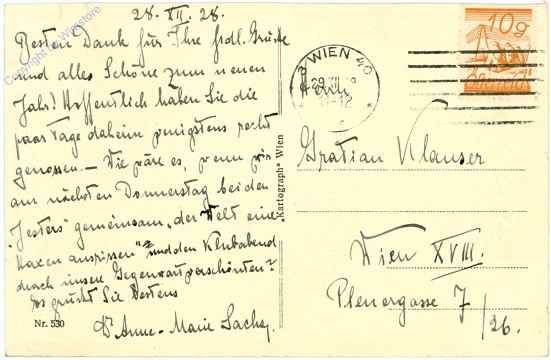 28. XII. 28.
Besten Dank für Ihre frdl. Grüße
und alles Schöne zum neuen
Jahr! Hoffentlich haben Sie die
paar Tage daheim wenigstens recht
genossen. — Wie wäre es, wenn wir
am nächsten Donnerstag bei den
"Jesters" gemeinsam "der Welt eine
Haxen ausrissen" und den Klubabend
durch unsere Gegenwart verschönten?
Es grüßt Sie bestens
Dr Anne-Marie
Nr. 530
"Kartograph" Wien
WIEN 40
11-12
10g
Österreich
Herrn
Gratian Klauser
Wien XVIII.
Plenergasse 7
/26.
Copyright by